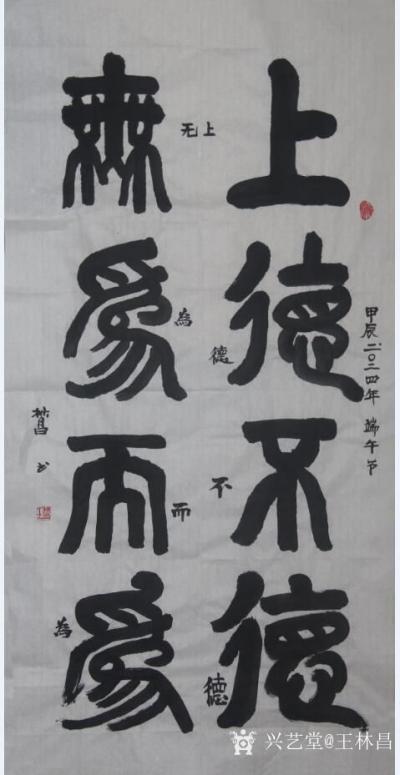 上德不德
無為而為
上德不德
无為而為
甲辰二〇二四年 端午节
林昌书
兴艺堂@王林昌